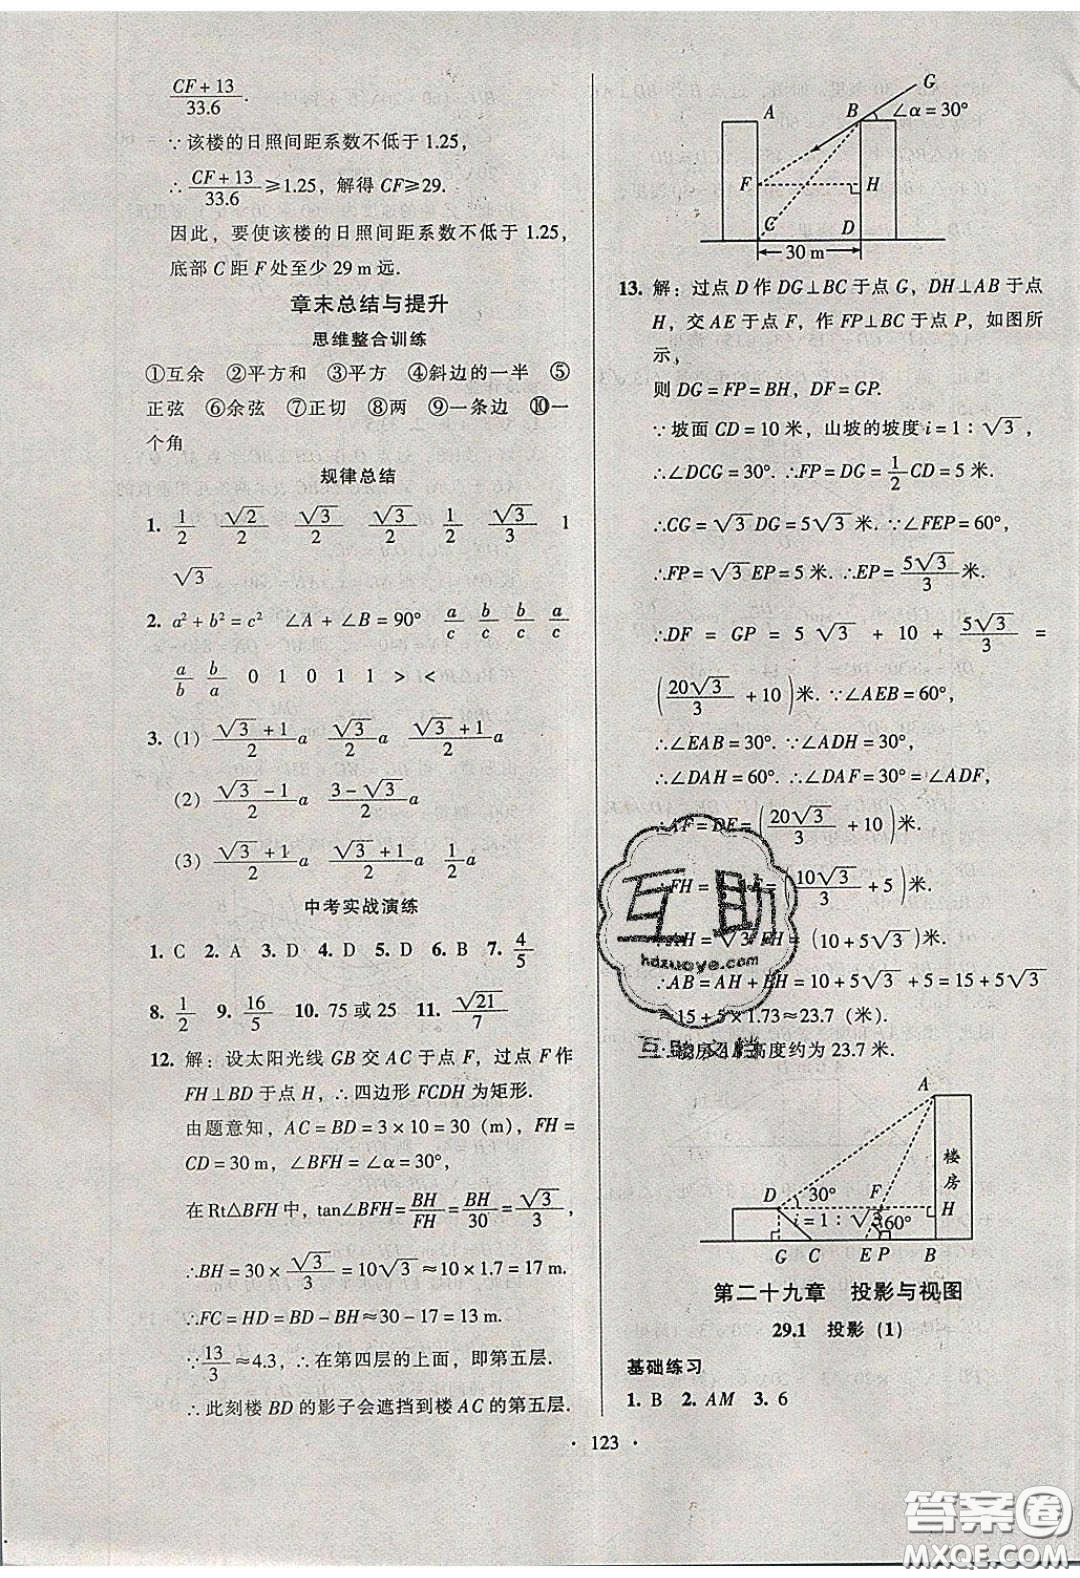 (CF+13)/33.6.
∵该楼的日照间距系数不低于 1.25,
∴(CF+13)/33.6≥1.25, 解得 CF≥29.
因此, 要使该楼的日照间距系数不低于 1.25,
底部 C 距 F 处至少 29 m 远.
章末总结与提升
思维整合训练
①互余 ②平方和 ③平方 ④斜边的一半 ⑤
正弦 ⑥余弦 ⑦正切 ⑧两 ⑨一条边 ⑩一
个角
规律总结
1. 1/2 √2/2 √3/2 √3/2 1/2 √3/3 1
√3
2. a²+b²=c² ∠A+∠B=90° a/c b/c b/c a/c
a/b b/a 0 1 0 1 1 > <
3. (1) (√3+1)/2 a √3/2 a (√3+1)/2 a
(2) (√3-1)/2 a (3-√3)/2 a
(3) (√3+1)/2 a (√3+1)/2 a 1/2 a
中考实战演练
1. C 2. A 3. D 4. D 5. D 6. B 7. 4/5
8. 1/2 9. 16/5 10. 75 或 25 11. √21/7
12. 解: 设太阳光线 GB 交 AC 于点 F, 过点 F 作
FH⊥BD 于点 H, ∴四边形 FCDH 为矩形.
由题意知, AC=BD=3×10=30 (m), FH=
CD=30 m, ∠BFH=∠α=30°,
在 Rt△BFH 中, tan∠BFH=BH/FH=BH/30=√3/3,
∴BH=30×√3/3=10√3≈10×1.7=17 m.
∴FC=HD=BD-BH≈30-17=13 m.
∵13/3≈4.3, ∴在第四层的上面, 即第五层.
∴此刻楼 BD 的影子会遮挡到楼 AC 的第五层.
G
A B ∠α=30°
F H
C D
30 m
13. 解: 过点 D 作 DG⊥BC 于点 G, DH⊥AB 于点
H, 交 AE 于点 F, 作 FP⊥BC 于点 P, 如图所
示,
则 DG=FP=BH, DF=GP.
∵坡面 CD=10 米, 山坡的坡度 i=1∶√3,
∴∠DCG=30°. ∴FP=DG=1/2 CD=5 米.
∴CG=√3 DG=5√3 米. ∵∠FEP=60°,
∴FP=√3 EP=5 米. ∴EP=5√3/3 米.
∴DF = GP = 5√3 + 10 + 5√3/3 =
(20√3/3+10)米. ∵∠AEB=60°,
∴∠EAB=30°. ∵∠ADH=30°,
∴∠DAH=60°. ∴∠DAF=30°=∠ADF,
∴AF=DF=(20√3/3+10)米.
∴FH= AF=(10√3/3+5)米.
∴AH=√3 FH=(10+5√3)米.
∴AB=AH+BH=10+5√3+5=15+5√3
≈15+5×1.73≈23.7 (米).
∴楼房 AB 高度约为 23.7 米.
互助
hdzuoye.com
互助文档
A
楼房
D 30° F H
i=1∶√3 60°
G C E P B
第二十九章 投影与视图
29.1 投影 (1)
基础练习
1. B 2. AM 3. 6
· 123 ·
答案圈
MXQE.COM